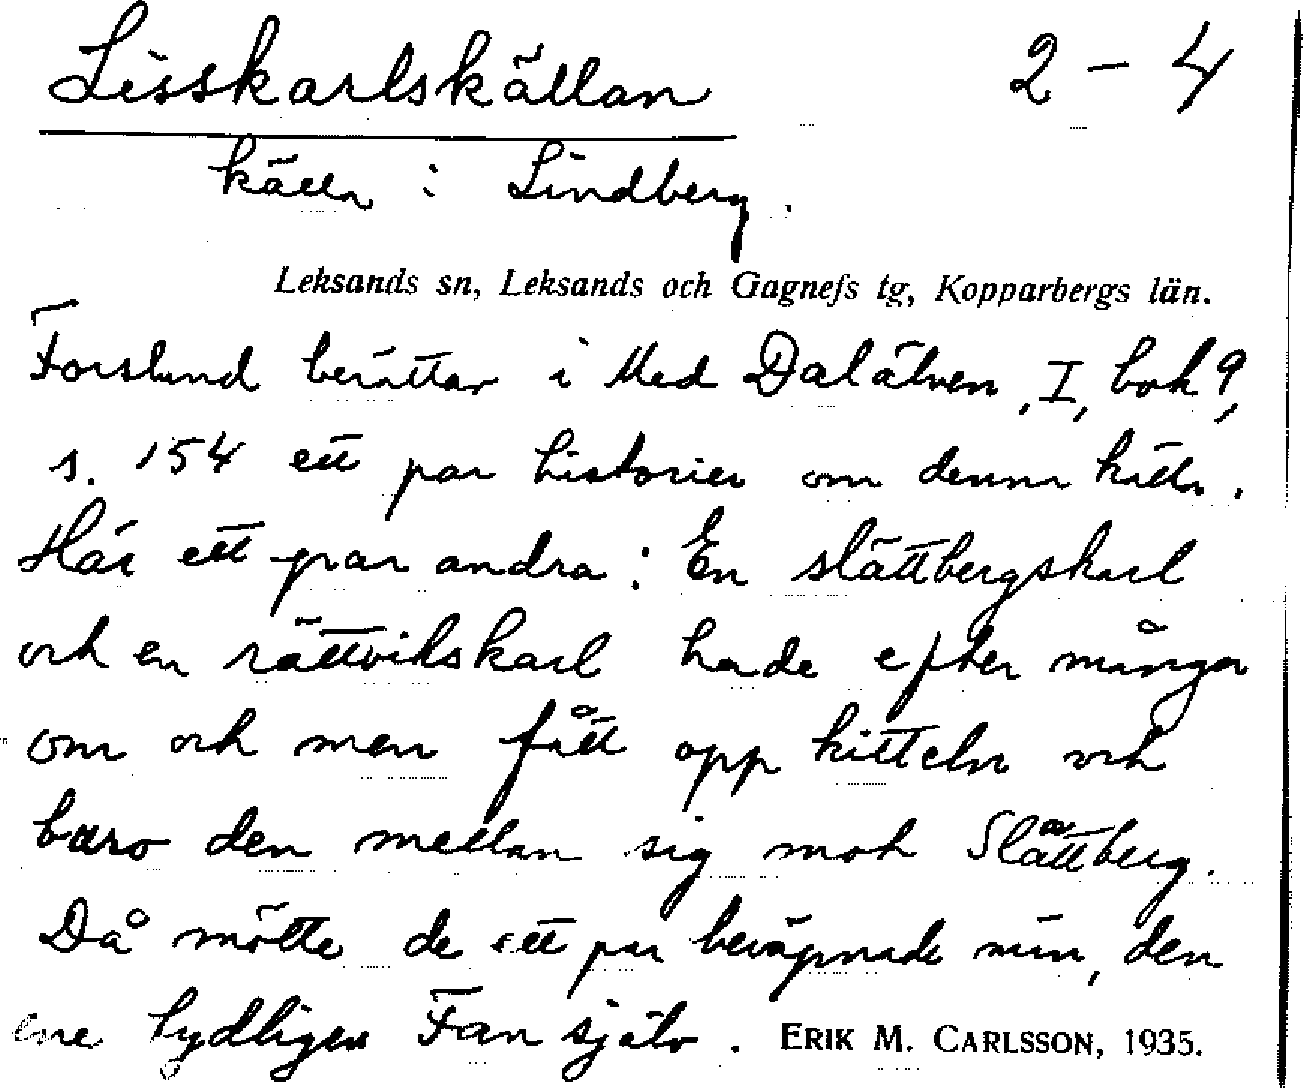 Lisskarlskällan 2 – 4
källa i Lindberg.
Leksands sn, Leksands och Gagnefs tg, Kopparbergs län.
Forslund berättar i Med Dalälven, I, bok 9,
s. 154 ett par historier om denna källa.
Här ett par andra: En slättbergskarl
och en rättvikskarl hade efter många
om och men fått opp kitteln och
buro den mellan sig mot Slättberg.
Då mötte de ett par beväpnade män, den
ene tydligen Fan själv. ERIK M. CARLSSON, 1935.